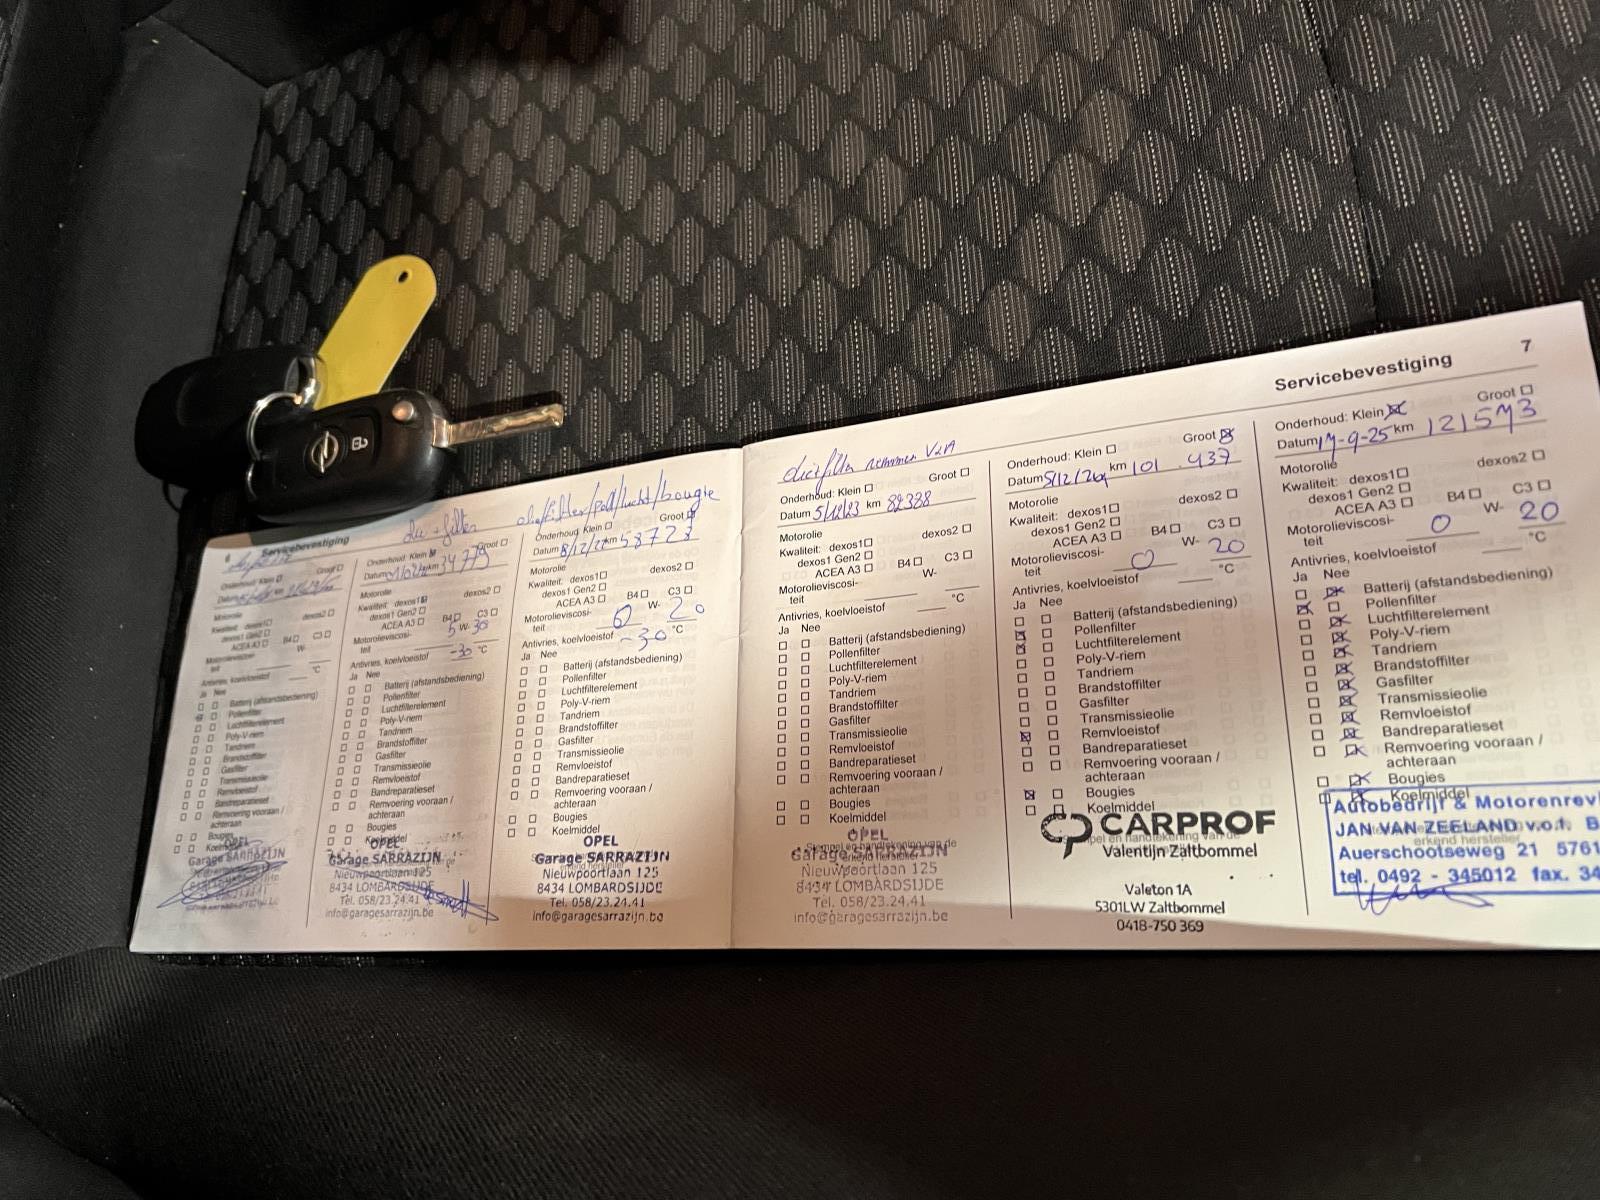 6 Servicebevestiging
Onderhoud: Klein Groot
Datum km
Motorolie
Kwaliteit: dexos1 dexos2
dexos1 Gen2
ACEA A3 B4 C3
Motorolieviscosi- W-
teit
Antivries, koelvloeistof °C
Ja Nee
Batterij (afstandsbediening)
Pollenfilter
Luchtfilterelement
Poly-V-riem
Tandriem
Brandstoffilter
Gasfilter
Transmissieolie
Remvloeistof
Bandreparatieset
Remvoering vooraan /
achteraan
Bougies
Koelmiddel
OPEL
Garage SARRAZIJN
olie + filter
Onderhoud: Klein Groot
Datum km 34775
Motorolie
Kwaliteit: dexos1 dexos2
dexos1 Gen2
ACEA A3 B4 C3
Motorolieviscosi- 5 W- 30
teit
Antivries, koelvloeistof -30 °C
Ja Nee
Batterij (afstandsbediening)
Pollenfilter
Luchtfilterelement
Poly-V-riem
Tandriem
Brandstoffilter
Gasfilter
Transmissieolie
Remvloeistof
Bandreparatieset
Remvoering vooraan /
achteraan
Bougies
Koelmiddel
OPEL
Garage SARRAZIJN
Nieuwpoortlaan 125
8434 LOMBARDSIJDE
Tel. 058/23.24.41
info@garagesarrazijn.be
olie/filter/poll/lucht/bougie
Onderhoud: Klein Groot
Datum 8/12/22 km 58723
Motorolie
Kwaliteit: dexos1 dexos2
dexos1 Gen2
ACEA A3 B4 C3
Motorolieviscosi- 0 W- 20
teit
Antivries, koelvloeistof -30 °C
Ja Nee
Batterij (afstandsbediening)
Pollenfilter
Luchtfilterelement
Poly-V-riem
Tandriem
Brandstoffilter
Gasfilter
Transmissieolie
Remvloeistof
Bandreparatieset
Remvoering vooraan /
achteraan
Bougies
Koelmiddel
OPEL
Garage SARRAZIJN
Nieuwpoortlaan 125
8434 LOMBARDSIJDE
Tel. 058/23.24.41
info@garagesarrazijn.be
Servicebevestiging 7
Onderhoud: Klein Groot
Datum 5/12/23 km 82338
Motorolie
Kwaliteit: dexos1 dexos2
dexos1 Gen2
ACEA A3 B4 C3
Motorolieviscosi- W-
teit
Antivries, koelvloeistof °C
Ja Nee
Batterij (afstandsbediening)
Pollenfilter
Luchtfilterelement
Poly-V-riem
Tandriem
Brandstoffilter
Gasfilter
Transmissieolie
Remvloeistof
Bandreparatieset
Remvoering vooraan /
achteraan
Bougies
Koelmiddel
OPEL
Stempel en handtekening van de
erkend hersteller
Garage SARRAZIJN
Nieuwpoortlaan 125
8434 LOMBARDSIJDE
Tel. 058/23.24.41
info@garagesarrazijn.be
Onderhoud: Klein Groot
Datum 5/12/24 km 101.437
Motorolie
Kwaliteit: dexos1 dexos2
dexos1 Gen2
ACEA A3 B4 C3
Motorolieviscosi- 0 W- 20
teit
Antivries, koelvloeistof °C
Ja Nee
Batterij (afstandsbediening)
Pollenfilter
Luchtfilterelement
Poly-V-riem
Tandriem
Brandstoffilter
Gasfilter
Transmissieolie
Remvloeistof
Bandreparatieset
Remvoering vooraan /
achteraan
Bougies
Koelmiddel
CARPROF
Valentijn Zaltbommel
Valeton 1A
5301LW Zaltbommel
0418-750 369
Onderhoud: Klein Groot
Datum 17-9-25 km 121573
Motorolie
Kwaliteit: dexos1 dexos2
dexos1 Gen2
ACEA A3 B4 C3
Motorolieviscosi- 0 W- 20
teit
Antivries, koelvloeistof °C
Ja Nee
Batterij (afstandsbediening)
Pollenfilter
Luchtfilterelement
Poly-V-riem
Tandriem
Brandstoffilter
Gasfilter
Transmissieolie
Remvloeistof
Bandreparatieset
Remvoering vooraan /
achteraan
Bougies
Koelmiddel
Autobedrijf & Motorenrev
JAN VAN ZEELAND v.o.f. B
erkend hersteller
Auerschootseweg 21 5761
tel. 0492 - 345012 fax. 34